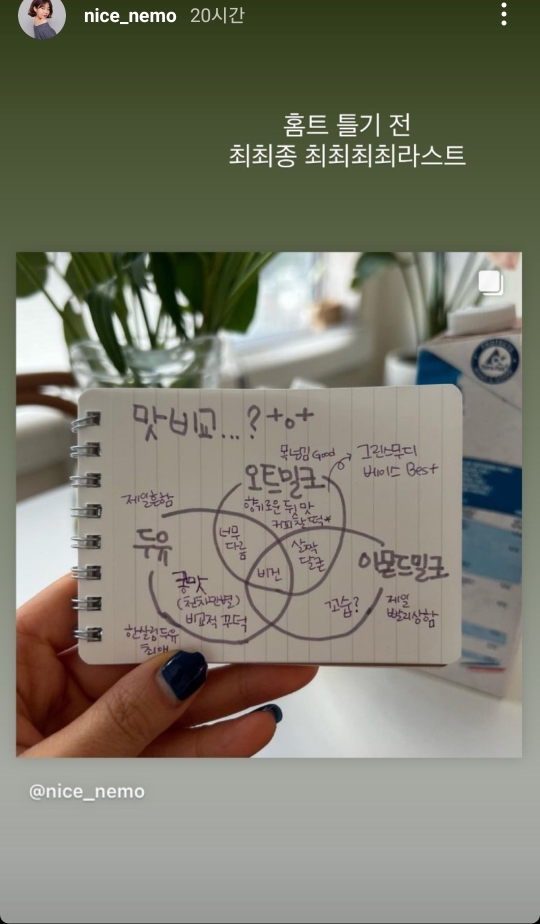 nice_nemo 20시간
홈트 틀기 전
최최종 최최최최라스트
맛비교...?
목넘김 Good
그린스무디
베이스 Best
오트밀크
향키로운 뒷맛
커피찰떡*
제일흔함
두유
너무
다름
살짝
달큰
아몬드밀크
비건
콩맛
(천차만별)
비교적 꾸덕
고습?
제일
빨리상함
한살림두유
최애
@nice_nemo